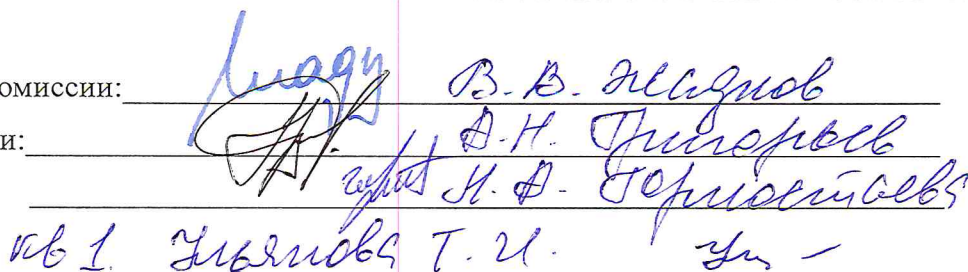 омиссии: В. В. Жаднов
и: А. Н. Григорьев
Н. А. Горностаева
кв 1. Ульянова Т. И.